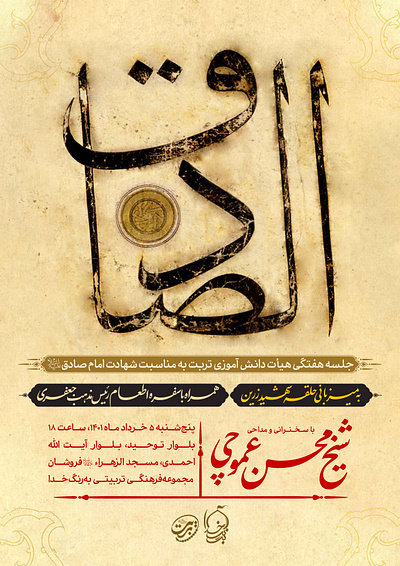 الصادق
جلسه هفتگی هیأت دانش آموزی تربت به مناسبت شهادت امام صادق
به میزبانی حلقه شهید زرین
همراه با سفره اطعام رئیس مذهب جعفری
با سخنرانی و مداحی
شیخ محسن عموچی
پنج‌شنبه ۵ خرداد ماه ۱۴۰۱، ساعت ۱۸
بلوار توحید، بلوار آیت الله
احمدی، مسجد الزهراء فروشان
مجموعه فرهنگی تربیتی به رنگ خدا